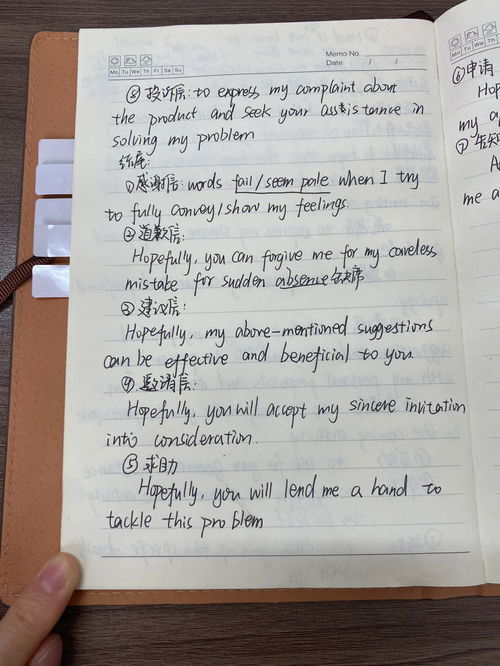 Memo No.
Mo Tu We Th Fr Sa Su
Date / /
⑧ 投诉信: to express my complaint about
the product and seek your assistance in
solving my problem
结尾:
①感谢信: words fail/seem pale when I try
to fully convey/show my feelings
②道歉信:
Hopefully, you can forgive me for my careless
mistake for sudden absence 缺席
③ 建议信:
Hopefully, my above-mentioned suggestions
can be effective and beneficial to you.
④ 邀请信:
Hopefully, you will accept my sincere invitation
into consideration.
⑤ 求助
Hopefully, you will lend me a hand to
tackle this problem
Mo Tu We
⑥申请
Hop
my a
⑦ 告知
A
me a